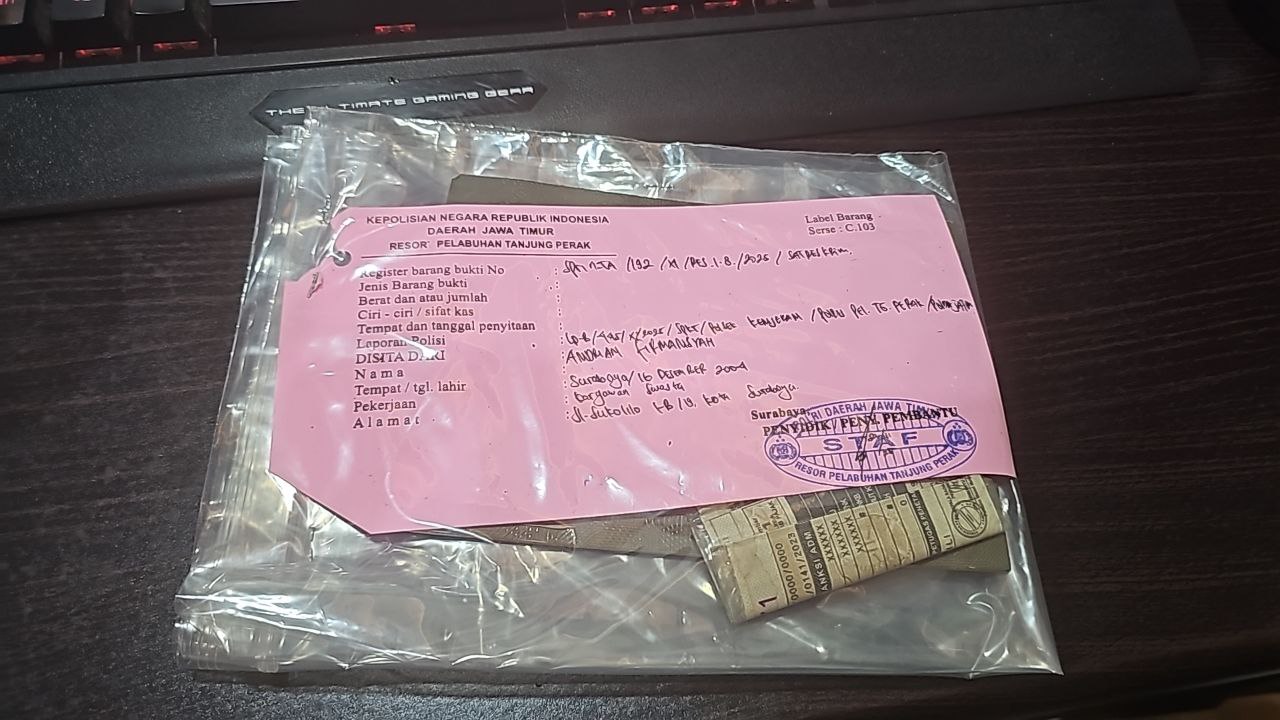 THE ULTIMATE GAMING GEAR
KEPOLISIAN NEGARA REPUBLIK INDONESIA
DAERAH JAWA TIMUR
RESOR PELABUHAN TANJUNG PERAK
Label Barang
Serse : C.103
Register barang bukti No : /192 / XI / RES.1.8./2025 / SATRESKRIM.
Jenis Barang bukti :
Berat dan atau jumlah :
Ciri - ciri / sifat kas :
Tempat dan tanggal penyitaan :
Laporan Polisi : LP-B / /XI/2025/SPKT/POLSEK KENJERAN /POLRES PEL. TG. PERAK /POLDA JATIM
DISITA DARI
N a m a : FIRMANSYAH
Tempat / tgl. lahir : Surabaya/ 16 DESEMBER 2004
Pekerjaan : karyawan Swasta
A l a m a t : Jl. Sukolilo Kota Surabaya.
Surabaya,
PENYIDIK / PENY. PEMBANTU
DAERAH JAWA TIMUR
STAF
RESOR PELABUHAN TANJUNG PERAK
0000/0000
/0141/2023
ANKSI ADM
XXXXXX
XXXXXX
XXXXXX